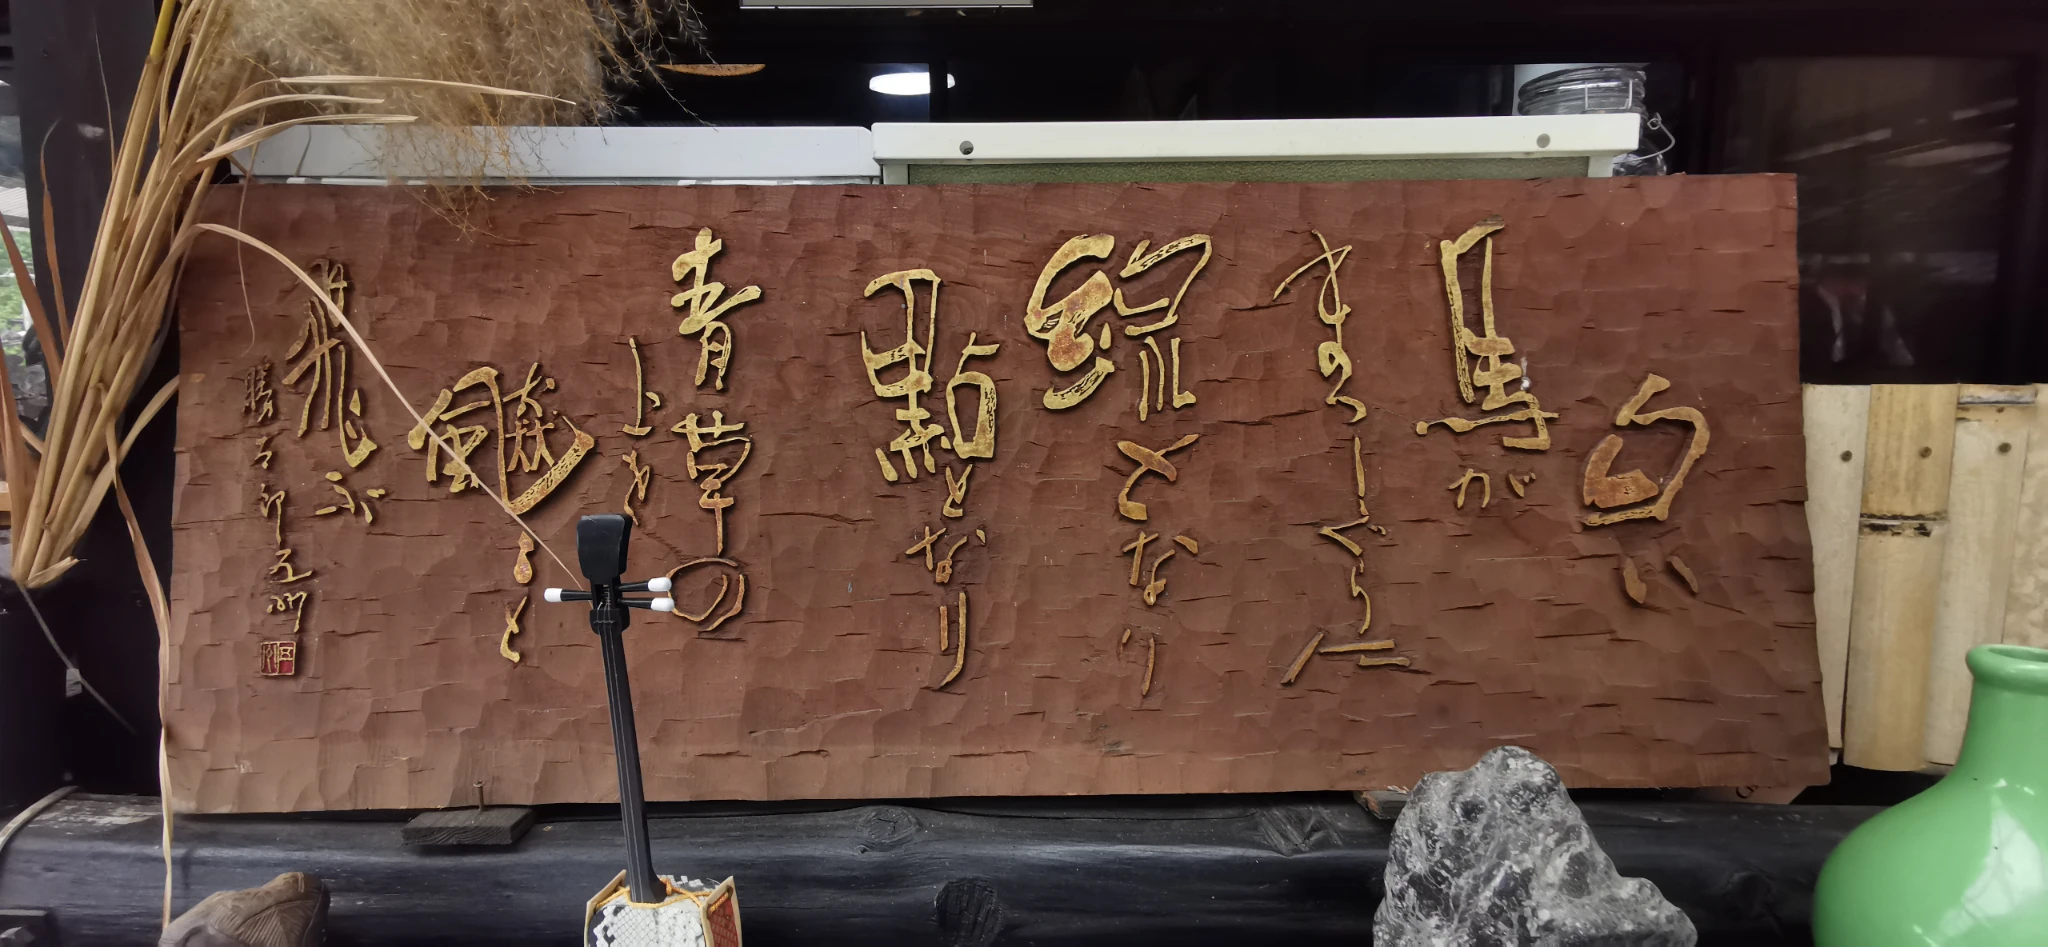 白い
馬が
まつしぐらに
線となり
點となり
青草の
上を
飈々と
飛ぶ